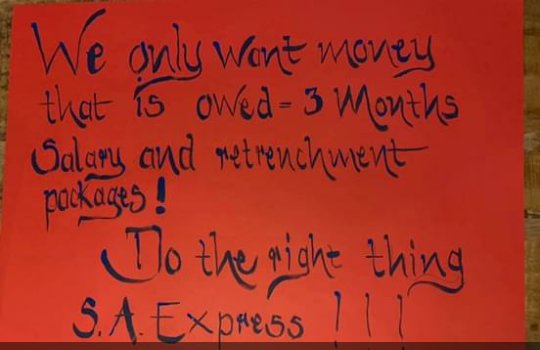 We only want money
that is owed = 3 Months
Salary and retrenchment
packages!
Do the right thing
S.A. Express !!!